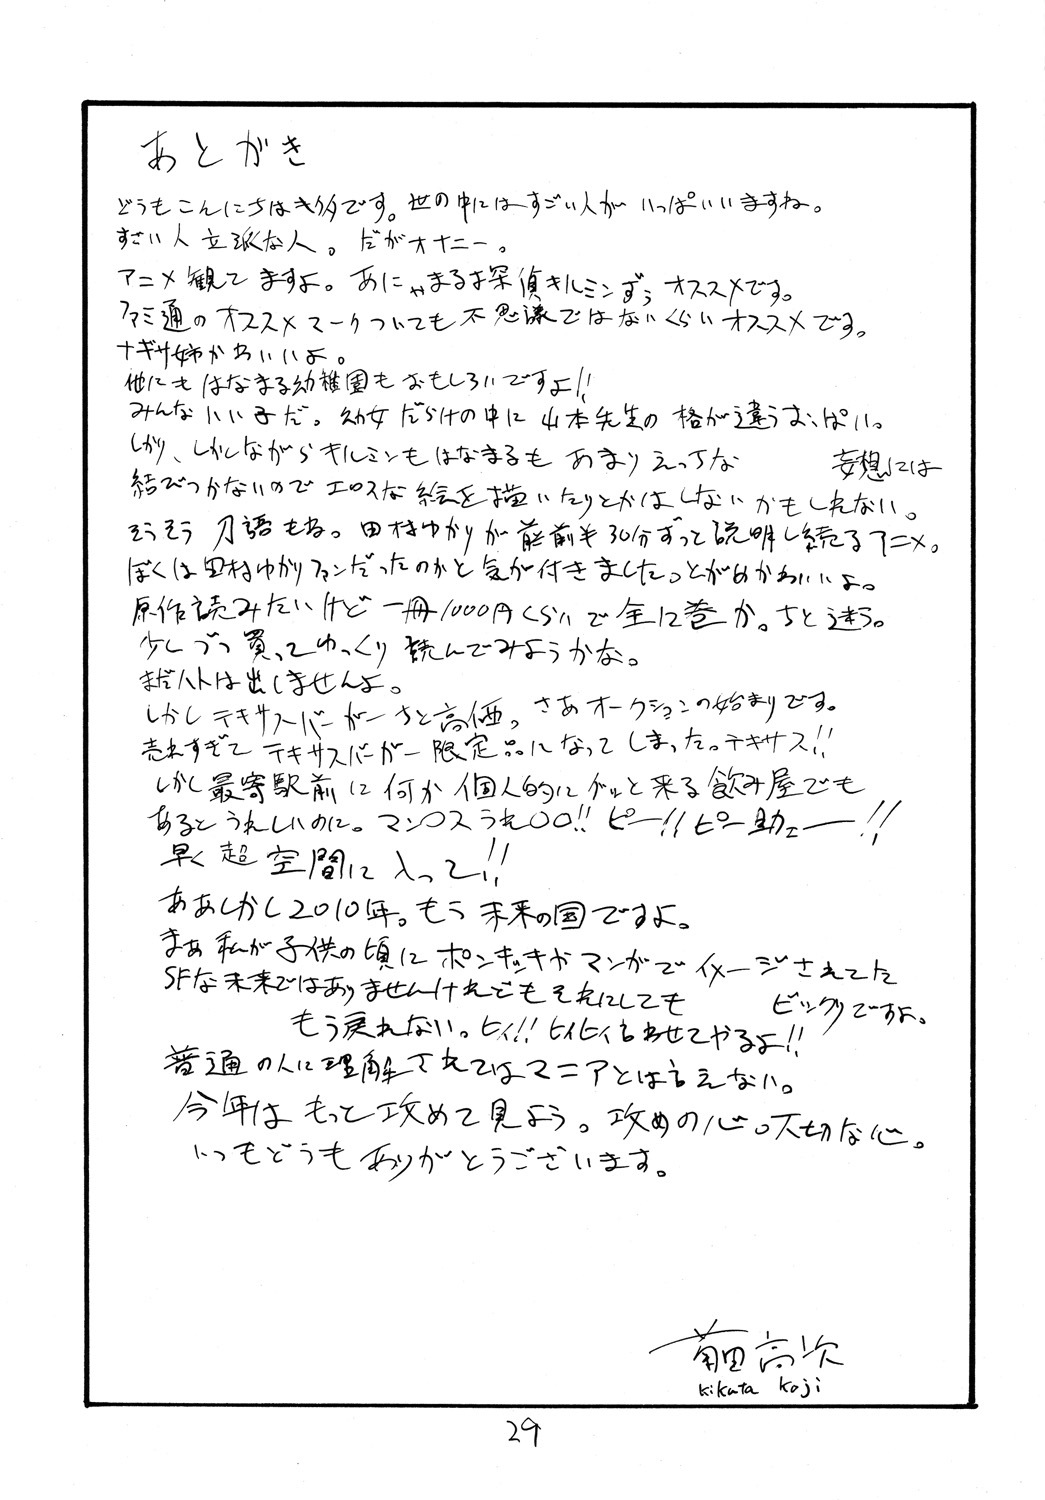 あとがき
どうもこんにちはキタです。世の中にはすごい人がいっぱいいますね。
すごい人立派な人。だがオナニー。
アニメ観てますよ。あにゃまる探偵キルミンずぅオススメです。
ファミ通のオススメマークついても不思議ではないくらいオススメです。
ナギサ姉かわいいよ。
他にもはなまる幼稚園もおもしろいですよ!!
みんないい子だ。幼女だらけの中に山本先生の格が違うおっぱい。
しかし、しかしながらキルミンもはなまるもあまりえっちな 妄想には
結びつかないのでエロスな絵を描いたりとかはしないかもしれない。
そうそう刀語もね。田村ゆかりが前半30分ずっと説明し続るアニメ。
ぼくは田村ゆかりファンだったのかと気が付きました。とがめかわいいよ。
原作読みたいけど一冊1000円くらいで全12巻か。ちと迷う。
少しづつ買ってゆっくり読んでみようかな。
まだハトは出しませんよ。
しかしテキサスバーガーちと高価。さあオークションの始まりです。
売れすぎてテキサスバーガー限定品になってしまった。テキサス!!
しかし最寄駅前に何か個人的にグッと来る飲み屋でも
あるとうれしいのに。マン○スうれ○○!!ピー!!ピー助ェー!!
早く超空間に入って!!
ああしかし2010年。もう未来の国ですよ。
まぁ私が子供の頃にポンキッキやマンガでイメージされてた
SFな未来ではありませんけれどもそれにしても ビックリですよ。
もう戻れない。ヒィ!!ヒィヒィ言わせてやるよ!!
普通の人に理解されてはマニアとは言えない。
今年はもっと攻めて見よう。攻めの心。大切な心。
いつもどうもありがとうございます。
菊田高次
Kikuta Koji
29